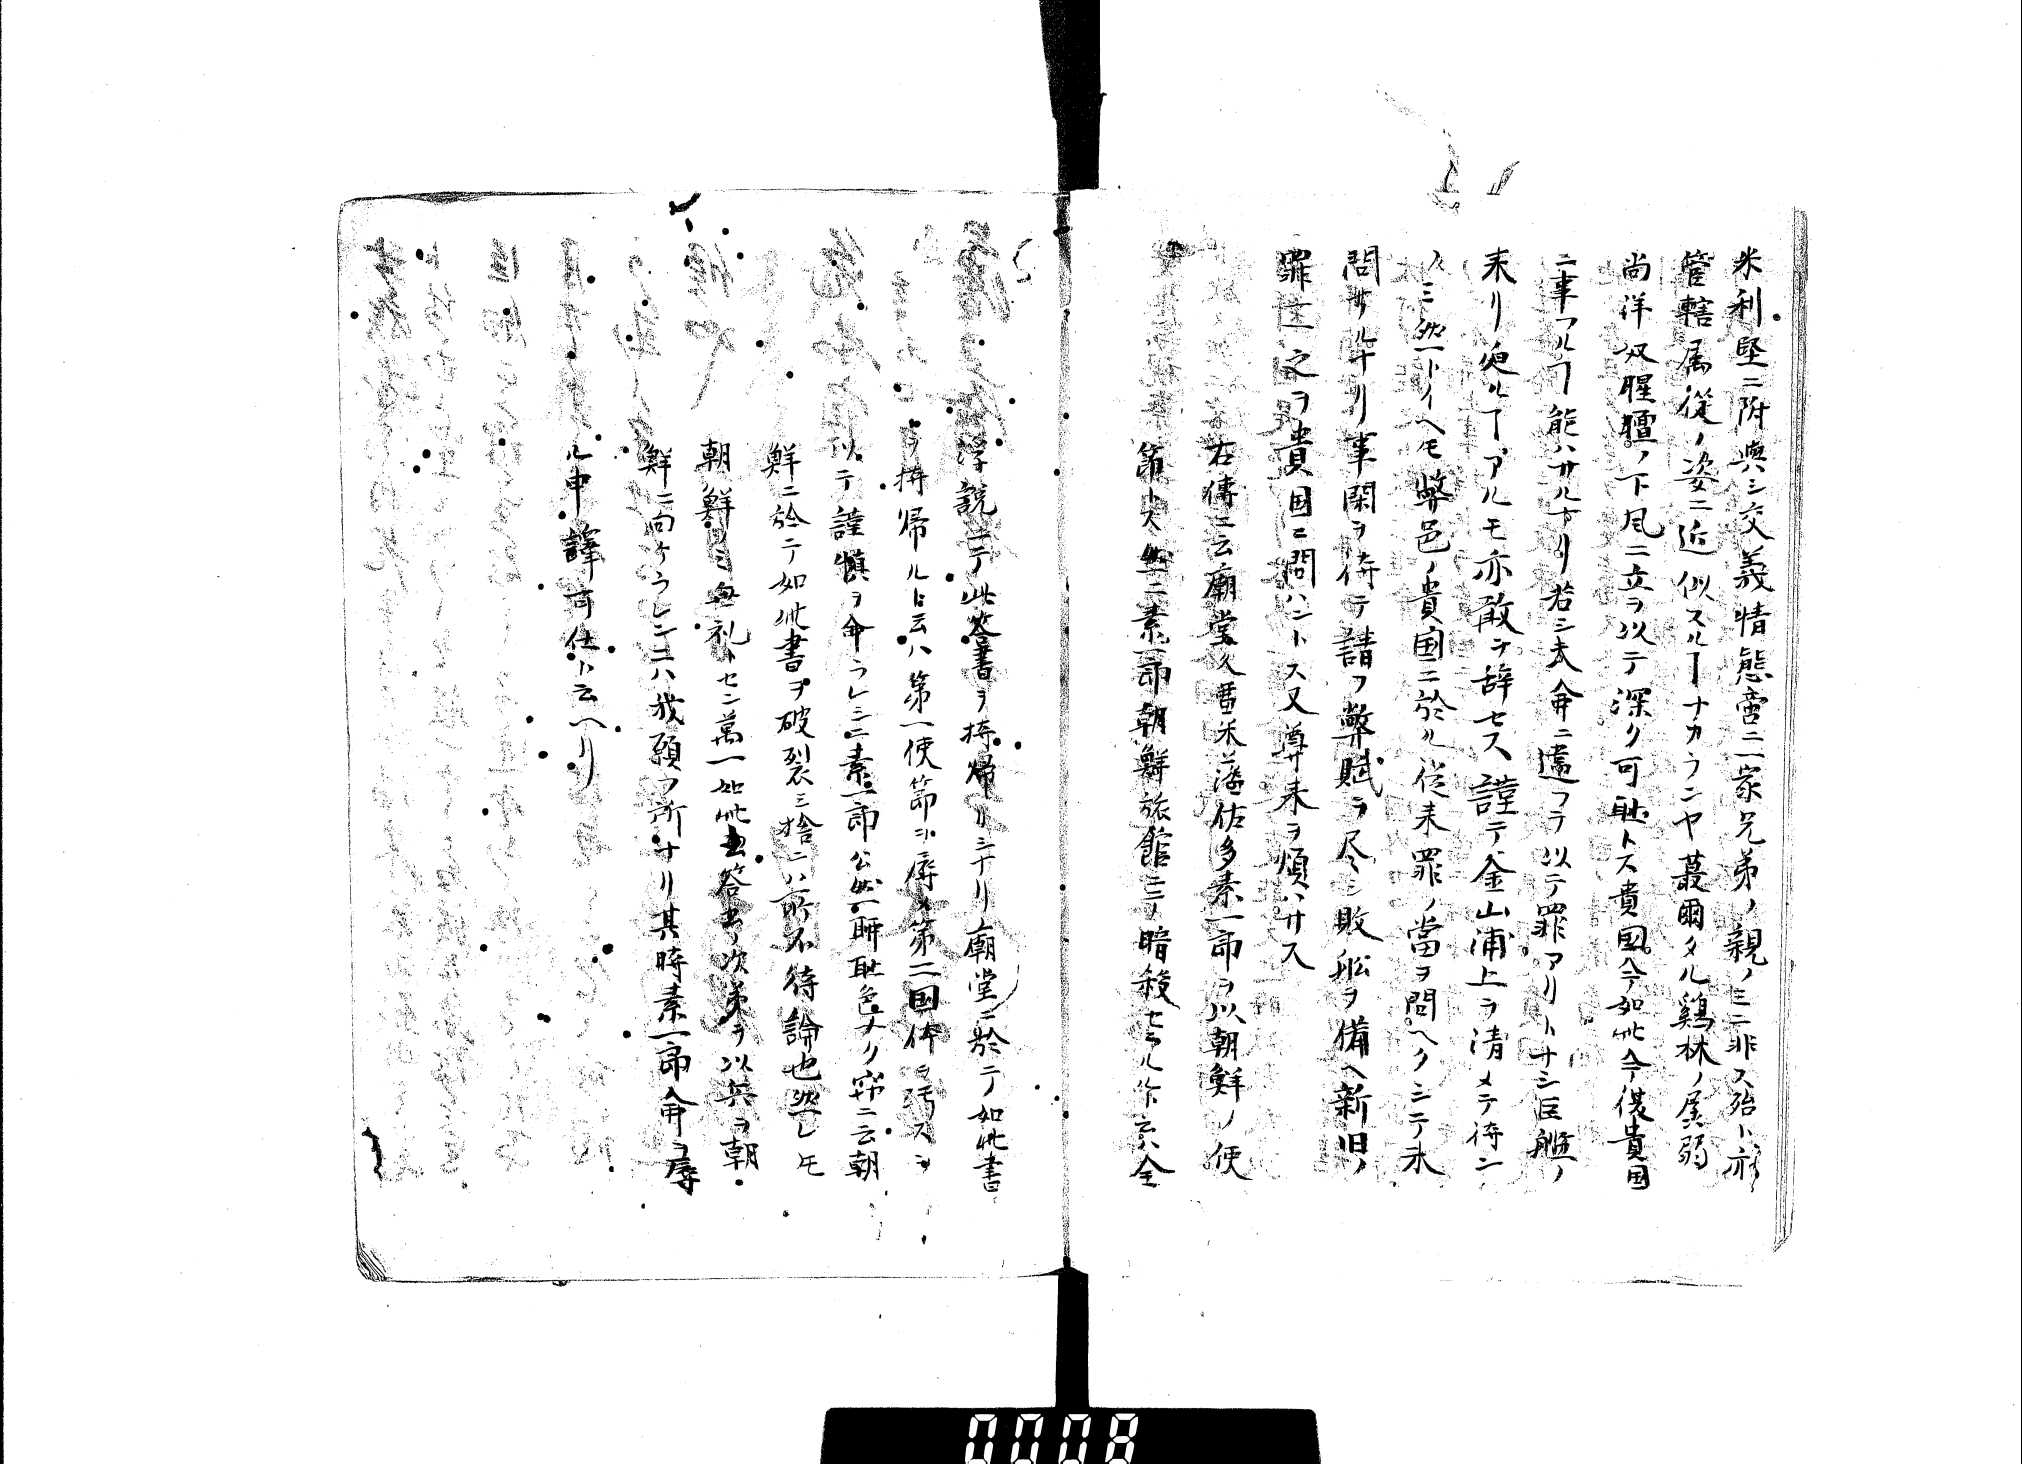 米利堅ニ附與シ交義情態啻ニ一家兄弟ノ親ノミニ非ス殆ト亦
管轄属従ノ姿ニ近似スルヿナカランヤ蕞爾タル鶏林ノ孱弱
尚洋奴腥膻ノ下風ニ立ヲ以テ深ク可耻トス貴國今如此今後貴国
ニ事フルヿ能ハサルナリ若シ夫命ニ違フヲ以テ罪アリトナシ巨艦ノ
来リ迫ルヿアルモ亦敢テ辞セス謹テ釜山浦上ヲ清メテ待ン
ノミ然トイヘモ弊邑ノ貴国ニ於ル従来罪ノ當ヲ問ヘクシテ未
問サルナリ事閑ヲ待テ請フ弊賦ヲ尽シ敗舩ヲ備ヘ新旧ノ
罪一之ヲ貴国ニ問ハントス又尊来ヲ煩ハサス
右傳ニ云廟堂久留米藩佐多素一郎ヲ以朝鮮ノ使
節トス然ニ素一郎朝鮮旅館ニテ暗殺セラル作云ハ全
浮説ニテ此答書ヲ持帰リシナリ廟堂ニ於テ如此書
ヲ持帰ルト云ハ第一使節ヲ辱メ第二国体ヲ汚スヲ
以テ謹慎ヲ命ラレシニ素一郎公然聊耻色ナク窃ニ云朝
鮮ニ於テ如此書ヲ破裂シ捨ニハ所不待論也然レモ
朝鮮ノミ無礼トセン萬一如此書答書ノ次第ヲ以兵ヲ朝
鮮ニ向ケラレンニハ我願フ所ナリ其時素一郎命ヲ辱
ル申譯可仕ト云ヘリ
0008